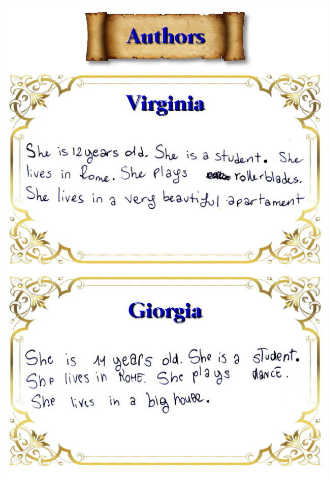 Authors
Virginia
She is 12 years old. She is a student. She
lives in Rome. She plays rollerblades.
She lives in a very beautiful apartament
Giorgia
She is 11 years old. She is a student.
She lives in ROME. She plays dance.
She lives in a big house.